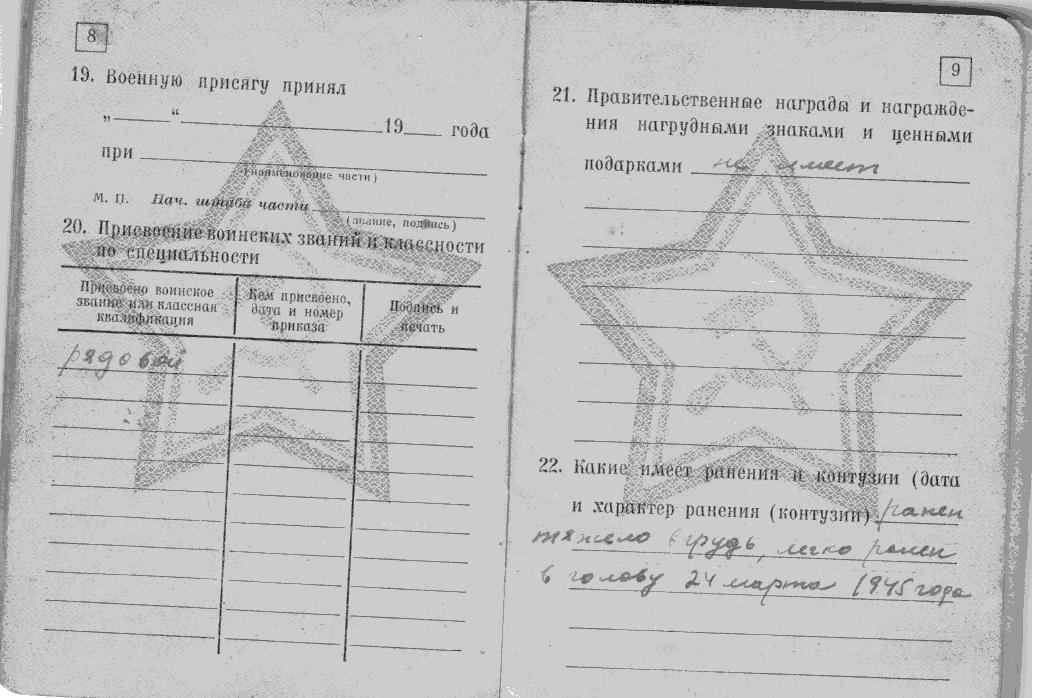 8
19. Военную присягу принял
„ “ 19 года
при
(наименование части)
М. П. Нач. штаба части
(звание, подпись)
20. Присвоение воинских званий и классности
по специальности
Присвоено воинское
звание или классная
квалификация
Кем присвоено,
дата и номер
приказа
Подпись и
печать
рядовой
9
21. Правительственные награды и награжде-
ния нагрудными знаками и ценными
подарками не имеет
22. Какие имеет ранения и контузии (дата
и характер ранения (контузии) ранен
тяжело в грудь, легко ранен
в голову 24 марта 1945 года